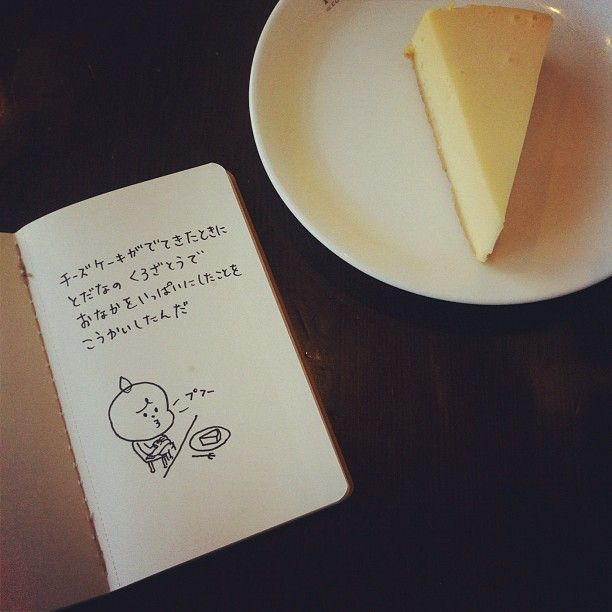 チーズケーキがでてきたときに
とだなの くろざとうで
おなかをいっぱいにしたことを
こうかいしたんだ
プフー